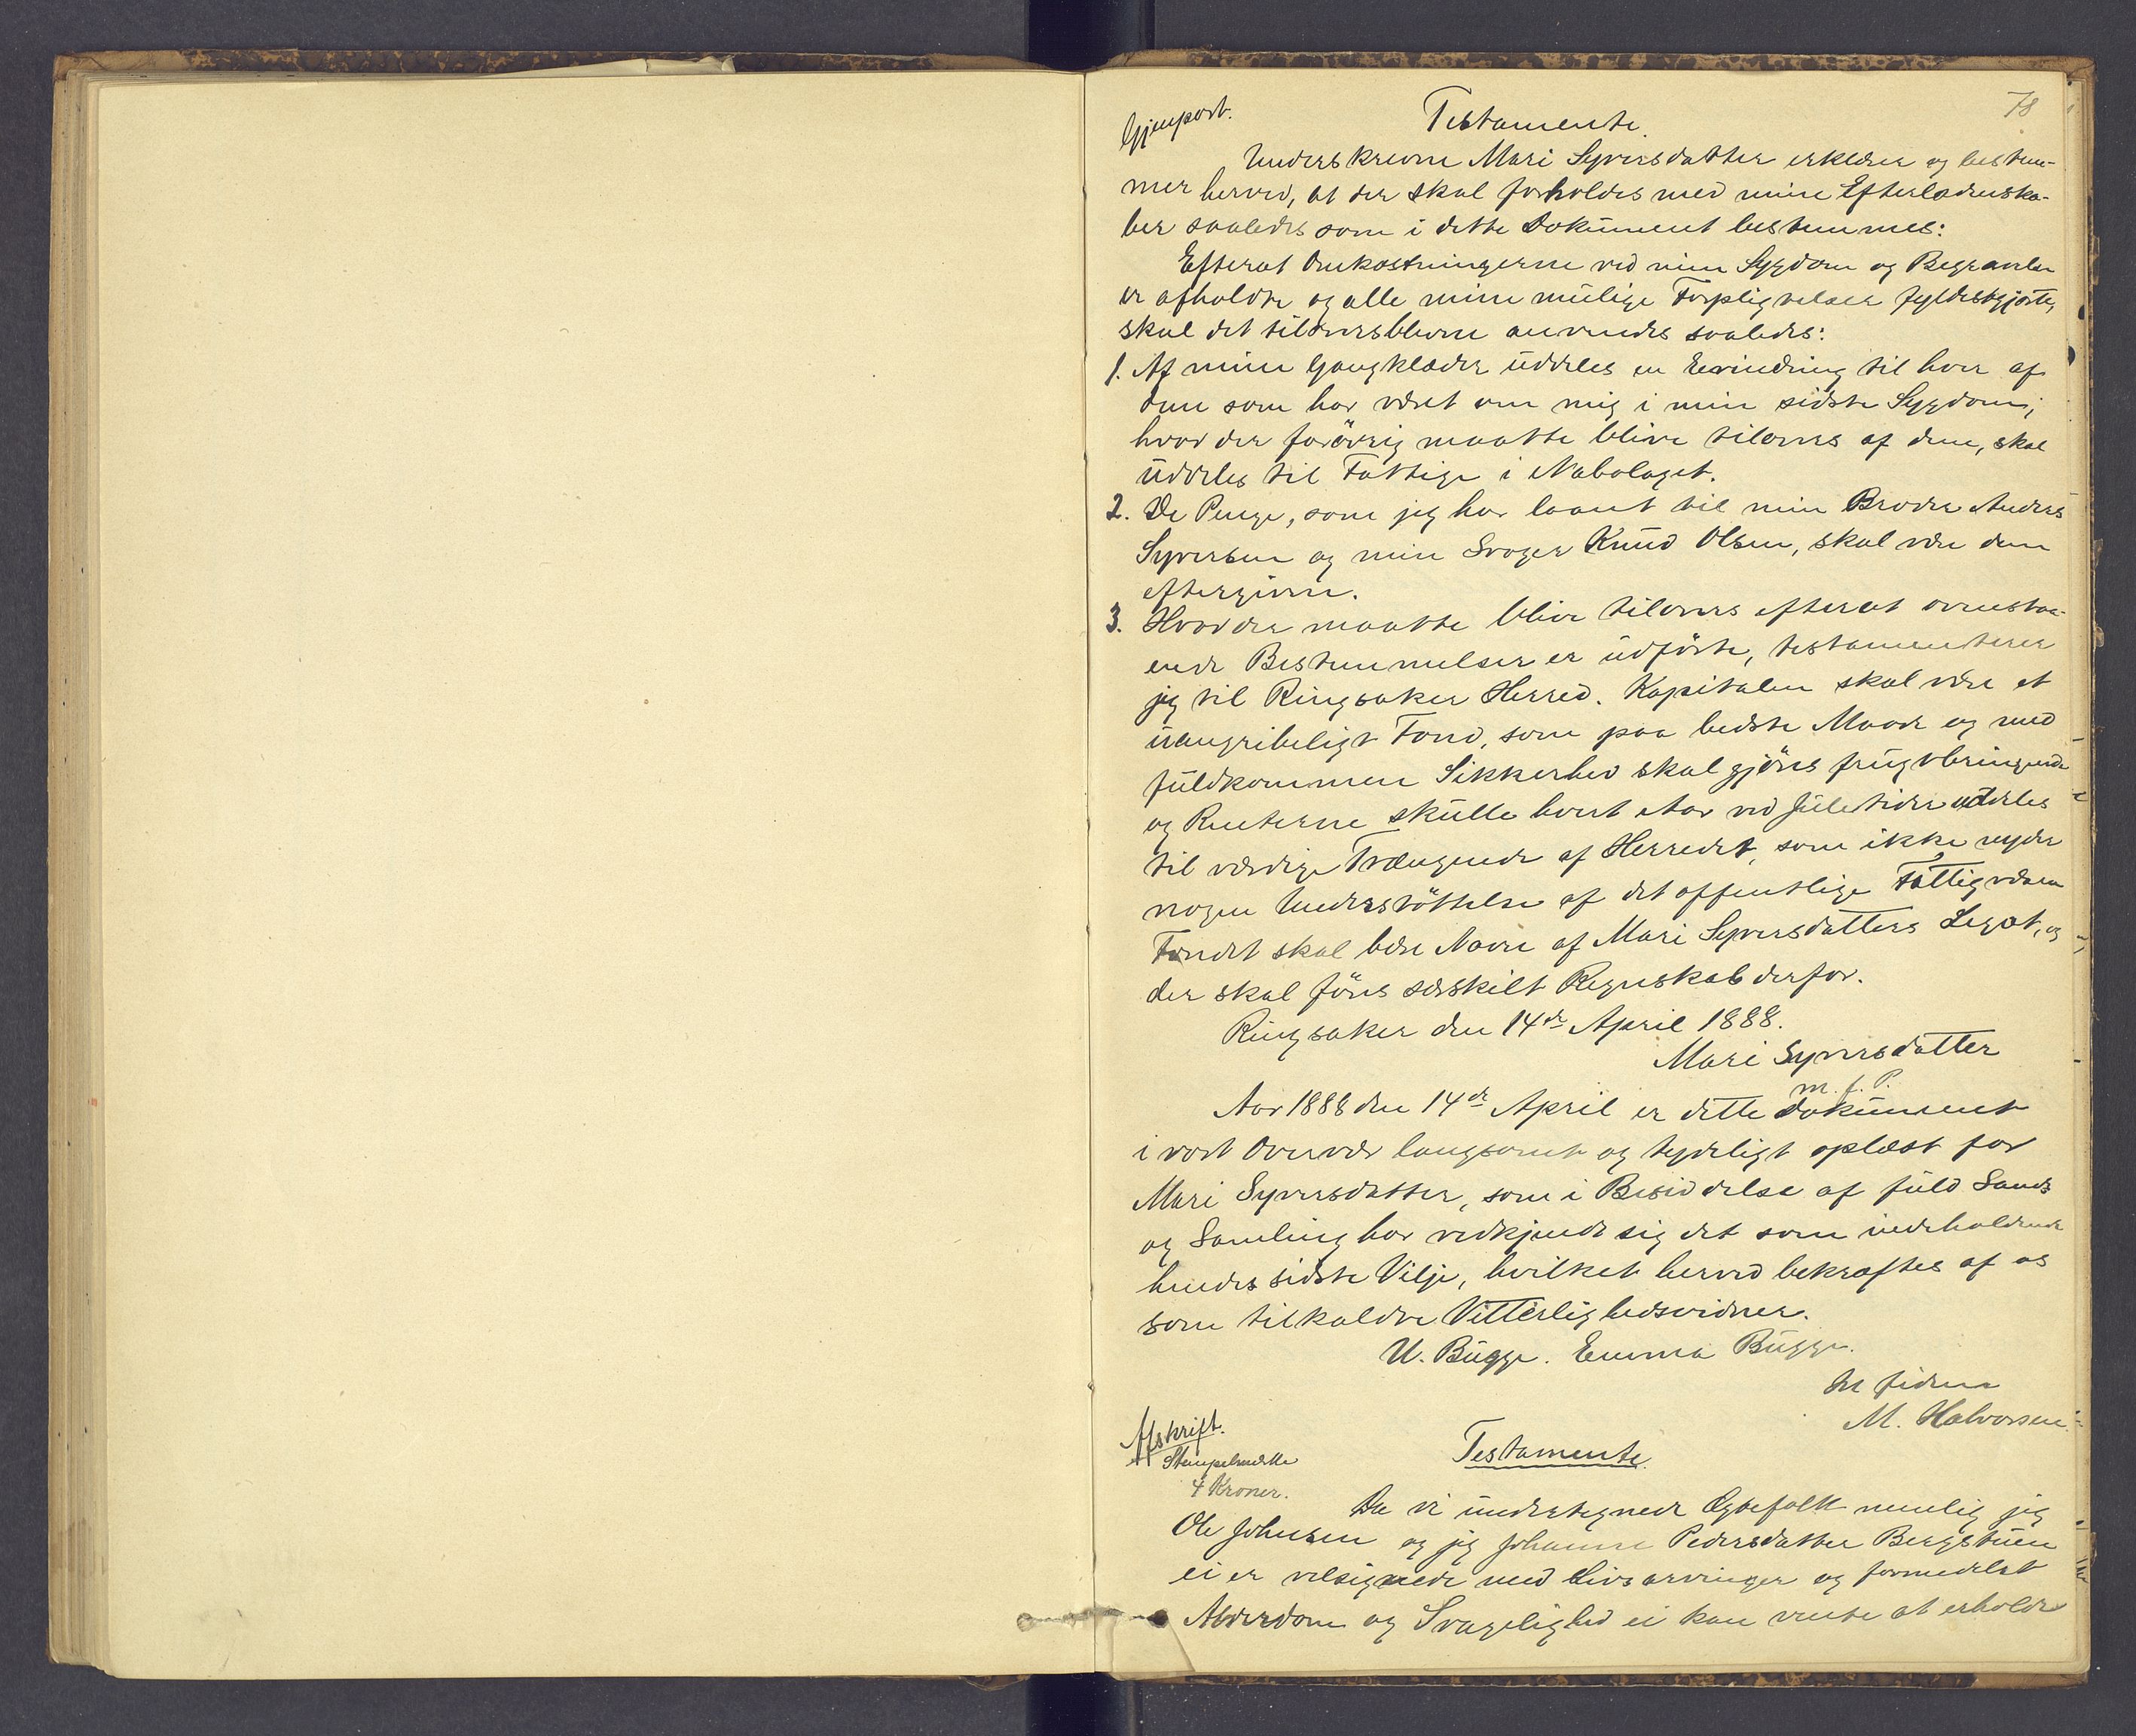 78
Gjenpart.
Testamente.
Underskrevne Mari Syversdatter erklærer og bestem-
mer herved, at der skal forholdes med mine Efterladenska-
ber saaledes som i dette Dokument bestemmes:
Efterat Omkostningerne ved min Sygdom og Begravelse
er afholdte og alle mine mulige Forpligtelser fyldestgjorte,
skal det tiloversblevne anvendes saaledes:
1. Af mine Gangklæder uddeles en Erindring til hver af
dem som har været om mig i min sidste Sygdom;
hvad der forövrig maatte blive tilovers af dem, skal
uddeles til Fattige i Nabolaget.
2. De Penge, som jeg har laant til min Broder Anders
Syversen og min Svoger Knud Olsen, skal være dem
eftergivne.
3. Hvad der maatte blive tilovers efterat ovenstaa-
ende Bestemmelser er udförte, testamenterer
jeg til Ringsaker Herred. Kapitalen skal være et
uangribeligt Fond, som paa bedste Maade og med
fuldkommen Sikkerhed skal gjöres frugtbringende
og Renterne skulle hvert Aar ved Juletider uddeles
til værdige Trængende af Herredet, som ikke nyder
nogen Understöttelse af det offentlige Fattigvæsen
Fondet skal bære Navn af Mari Syversdatters Legat, og
der skal föres særskilt Regnskab derfor.
Ringsaker den 14de April 1888.
Mari Syversdatter
m. f. P.
Aar 1888 den 14de April er dette Dokument
i vort Overvær langsomt og tydeligt oplæst for
Mari Syversdatter, som i Besiddelse af fuld Sands
og Samling har vedkjendt sig det som indeholdende
hendes sidste Vilje, hvilket herved bekræftes af os
som tilkaldte Vitterlighedsvidner.
U. Bugge. Emma Bugge.
In fidem
M. Halvorsen
Afskrift.
Stempelmærke
4 Kroner.
Testamente.
Da vi undertegnede Egtefolk nemlig jeg
Ole Johnsen og jeg Johanne Pedersdatter Bergstuen
ei er velsignede med Livsarvinger og formedelst
Alderdom og Svagelighed ei kan vente at erholde